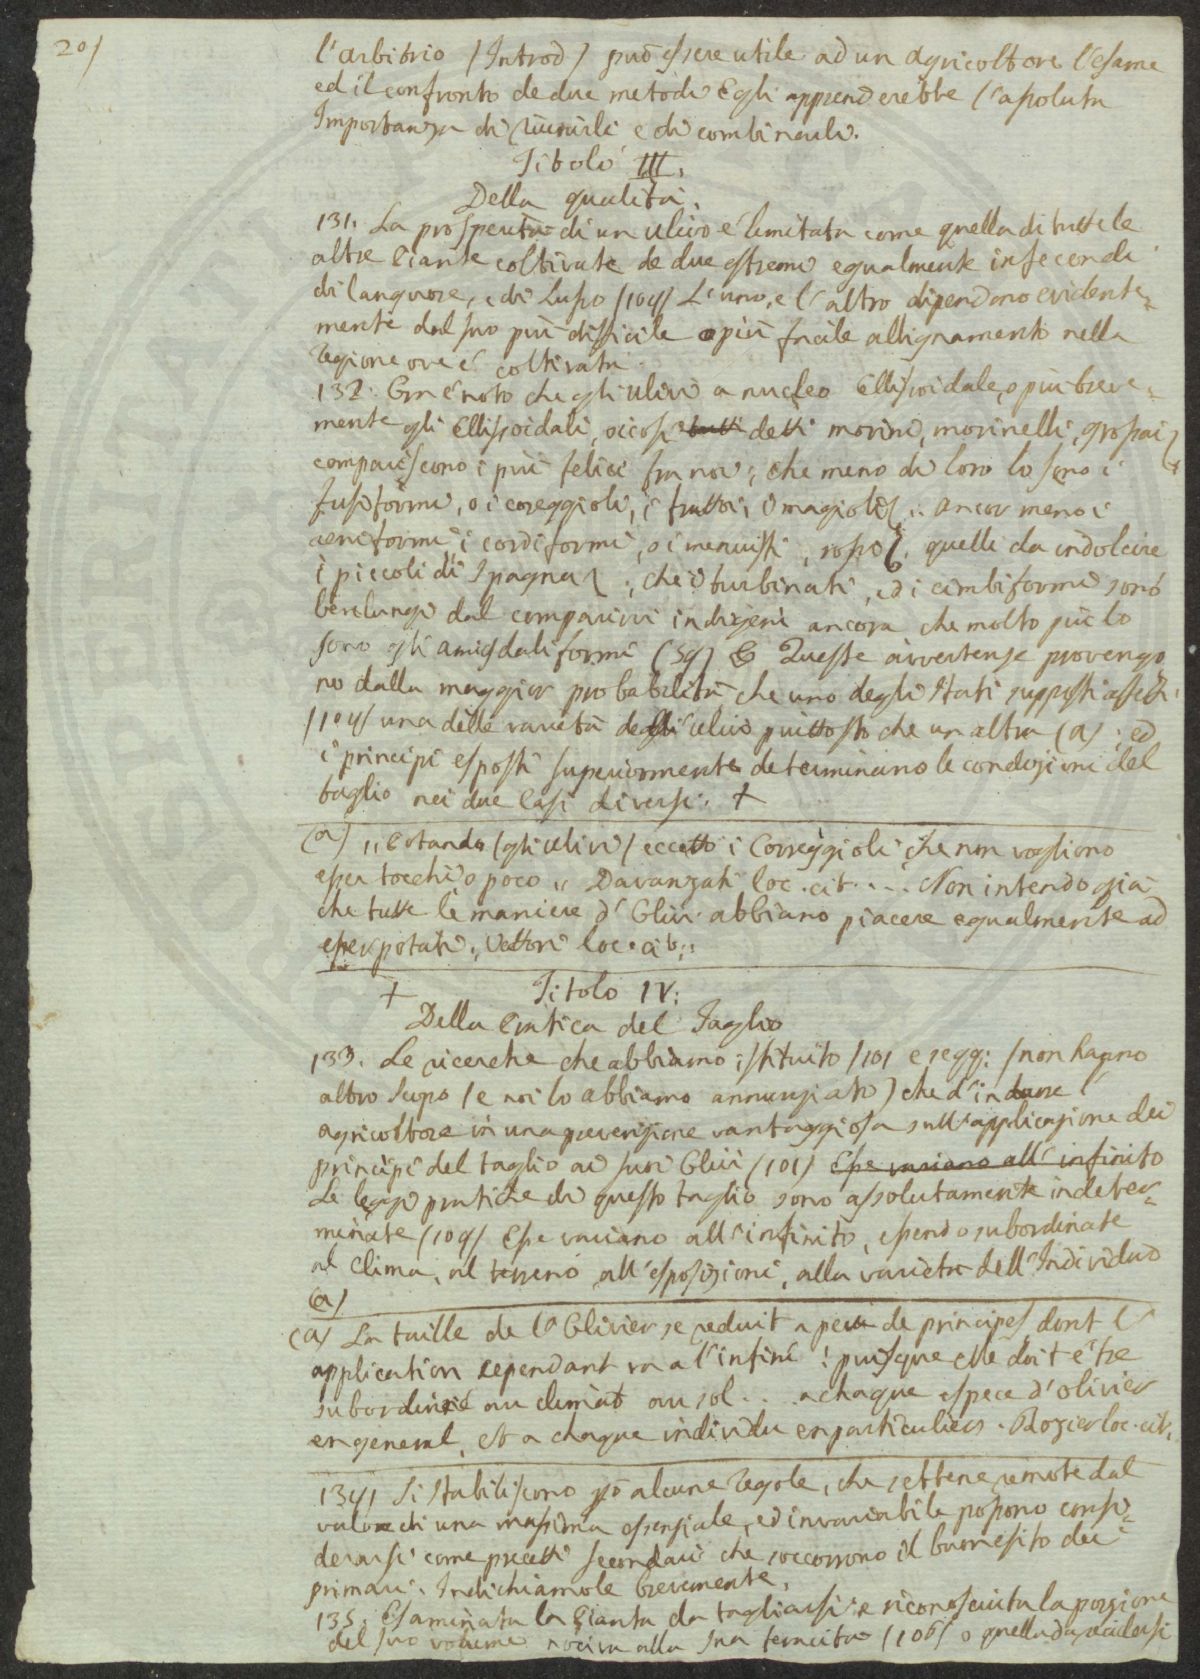 20)
l'arbitrio (Introd) può essere utile ad un Agricoltore l'esame
ed il confronto de due metodi Egli apprenderebbe l'assoluta
Importanza di riunirli e di combinarli.
Titolo III.
Della qualità.
131. La prosperità di un ulivo è limitata come quella di tutte le
altre Piante coltivate da due estremi egualmente infecondi
di languore, e di Lusso (104) L'uno, e l'altro dipendono evidente=
mente dal suo più difficile o più facile allignamento nella
regione ove è coltivata
132. Ora è noto che gli ulivi a nucleo Ellissoidale, o più breve=
mente gli Ellissoidali, o i così tutti detti morini, morinelli, grossai
compariscono i più felici fra noi; che meno di loro lo sono i
fusiformi, o i coreggioli, i frattoi, i magioli; ancor meno i
reniformi i cordiformi, o i mervisti, rossi, quelli da indolcire
i piccoli di Spagna; che i turbinati, ed i cimbiformi sono
ben lungi dal comparirvi indigeni ancora che molto più lo
sono gli amigdaliformi (59) Queste avvertenze provengo
no dalla maggior probabilità che uno degli stati supposti affetti
(104) una delle varietà degli ulivi piuttosto che un altra (a); ed
i principi esposti superiormente determinano le condizioni del
taglio nei due Casi diversi. +
(a) ,, Potando (gli ulivi) eccetto i Correggioli che non vogliono
esser tocchi o poco ,, Davanzati loc. cit. ... Non intendo già
che tutte le maniere d'Ulivi abbiano piacere egualmente ad
esser potati., Vettori loc. cit.
+ Titolo IV.
Della Pratica del Taglio
133. Le ricerche che abbiamo istituito (101 e segg: (non hanno
altro scopo (e noi lo abbiamo annunziato) che d'indurre l'
agricoltore in una prevenzione vantaggiosa sull'applicazione dei
principi del taglio ai suoi Ulivi (101) Esse variano all'infinito
Le leggi pratiche di questo taglio sono assolutamente indeter=
minate (109) Esse variano all'infinito, essendo subordinate
al Clima, al terreno all'esposizioni, alla varietà dell'Individuo
(a)
(a) La taille de l'Olivier se reduit a peu de principes dont l'
application cependant va a l'infini! puisque elle doit etre
subordinée au climat au sol ... a chaque espece d'olivier
en general, et a chaque individu en particuliers. Rozier loc. cit.
134) Si stabiliscono però alcune regole, che sebbene remote dal
valore di una massima essenziale, ed invariabile possono consi=
derarsi come precetti secondari che soccorrono il buon esito dei
primari. Indichiamole brevemente.
135. Esaminata la Pianta da tagliarsi e riconosciuta la porzione
del suo volume nociva alla sua tenacità (106) o quella da recidersi